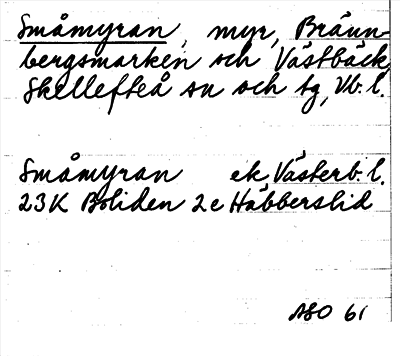 Småmyran, myr, Bräun-
bergsmarken och Västbäck
Skellefteå sn och tg, Vb. l.
Småmyran ek Västerb. l.
23K Boliden 2e Häbbersliden
ASO 61